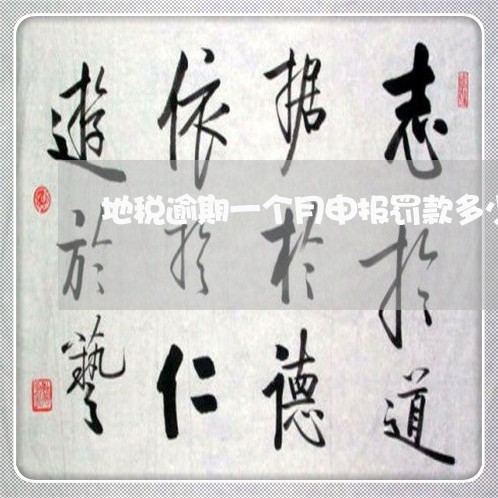 志於道
据於德
依於仁
遊於藝
地税逾期一个月申报罚款多